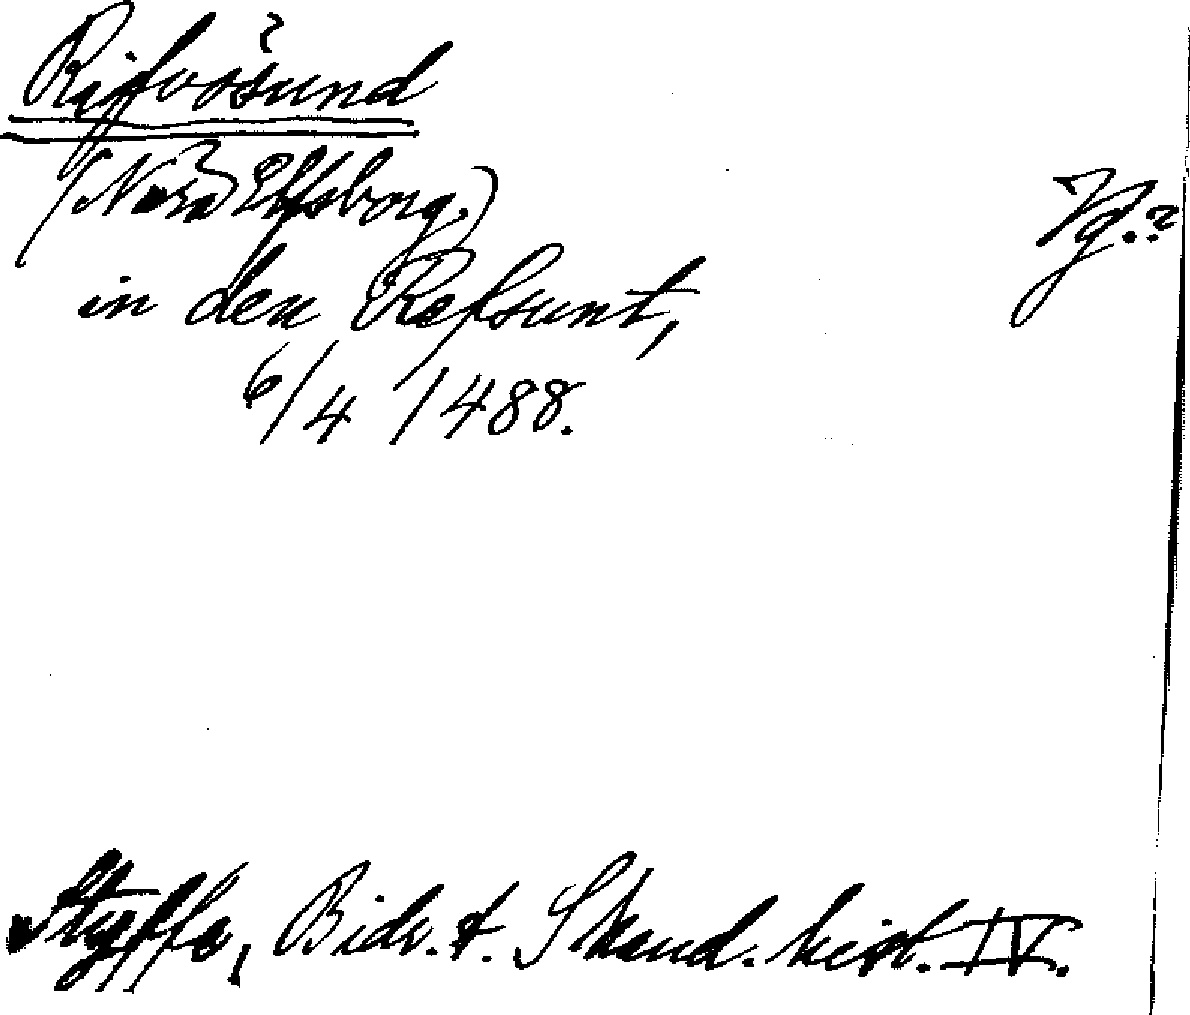 Rifvösund ?
(Nära Elfsborg.)
Vg.?
in den Refsunt,
6/4 1488.
Styffe, Bidr. t. Skand. hist. IV.